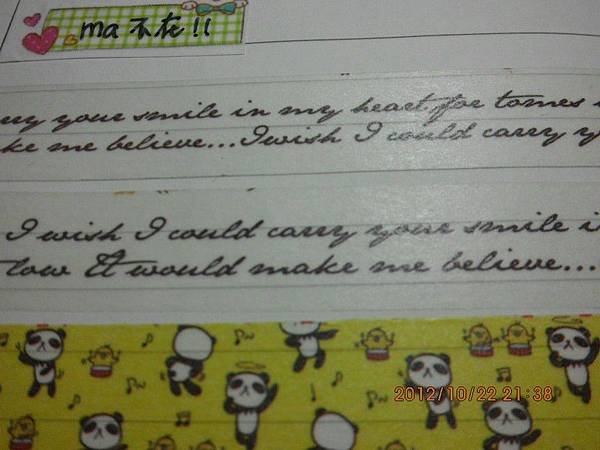 ma 不在 !!
rry your smile in my heart for tomes
ke me believe...I wish I could carry y
I wish I could carry your smile i
low It would make me believe...
2012/10/22 21:38